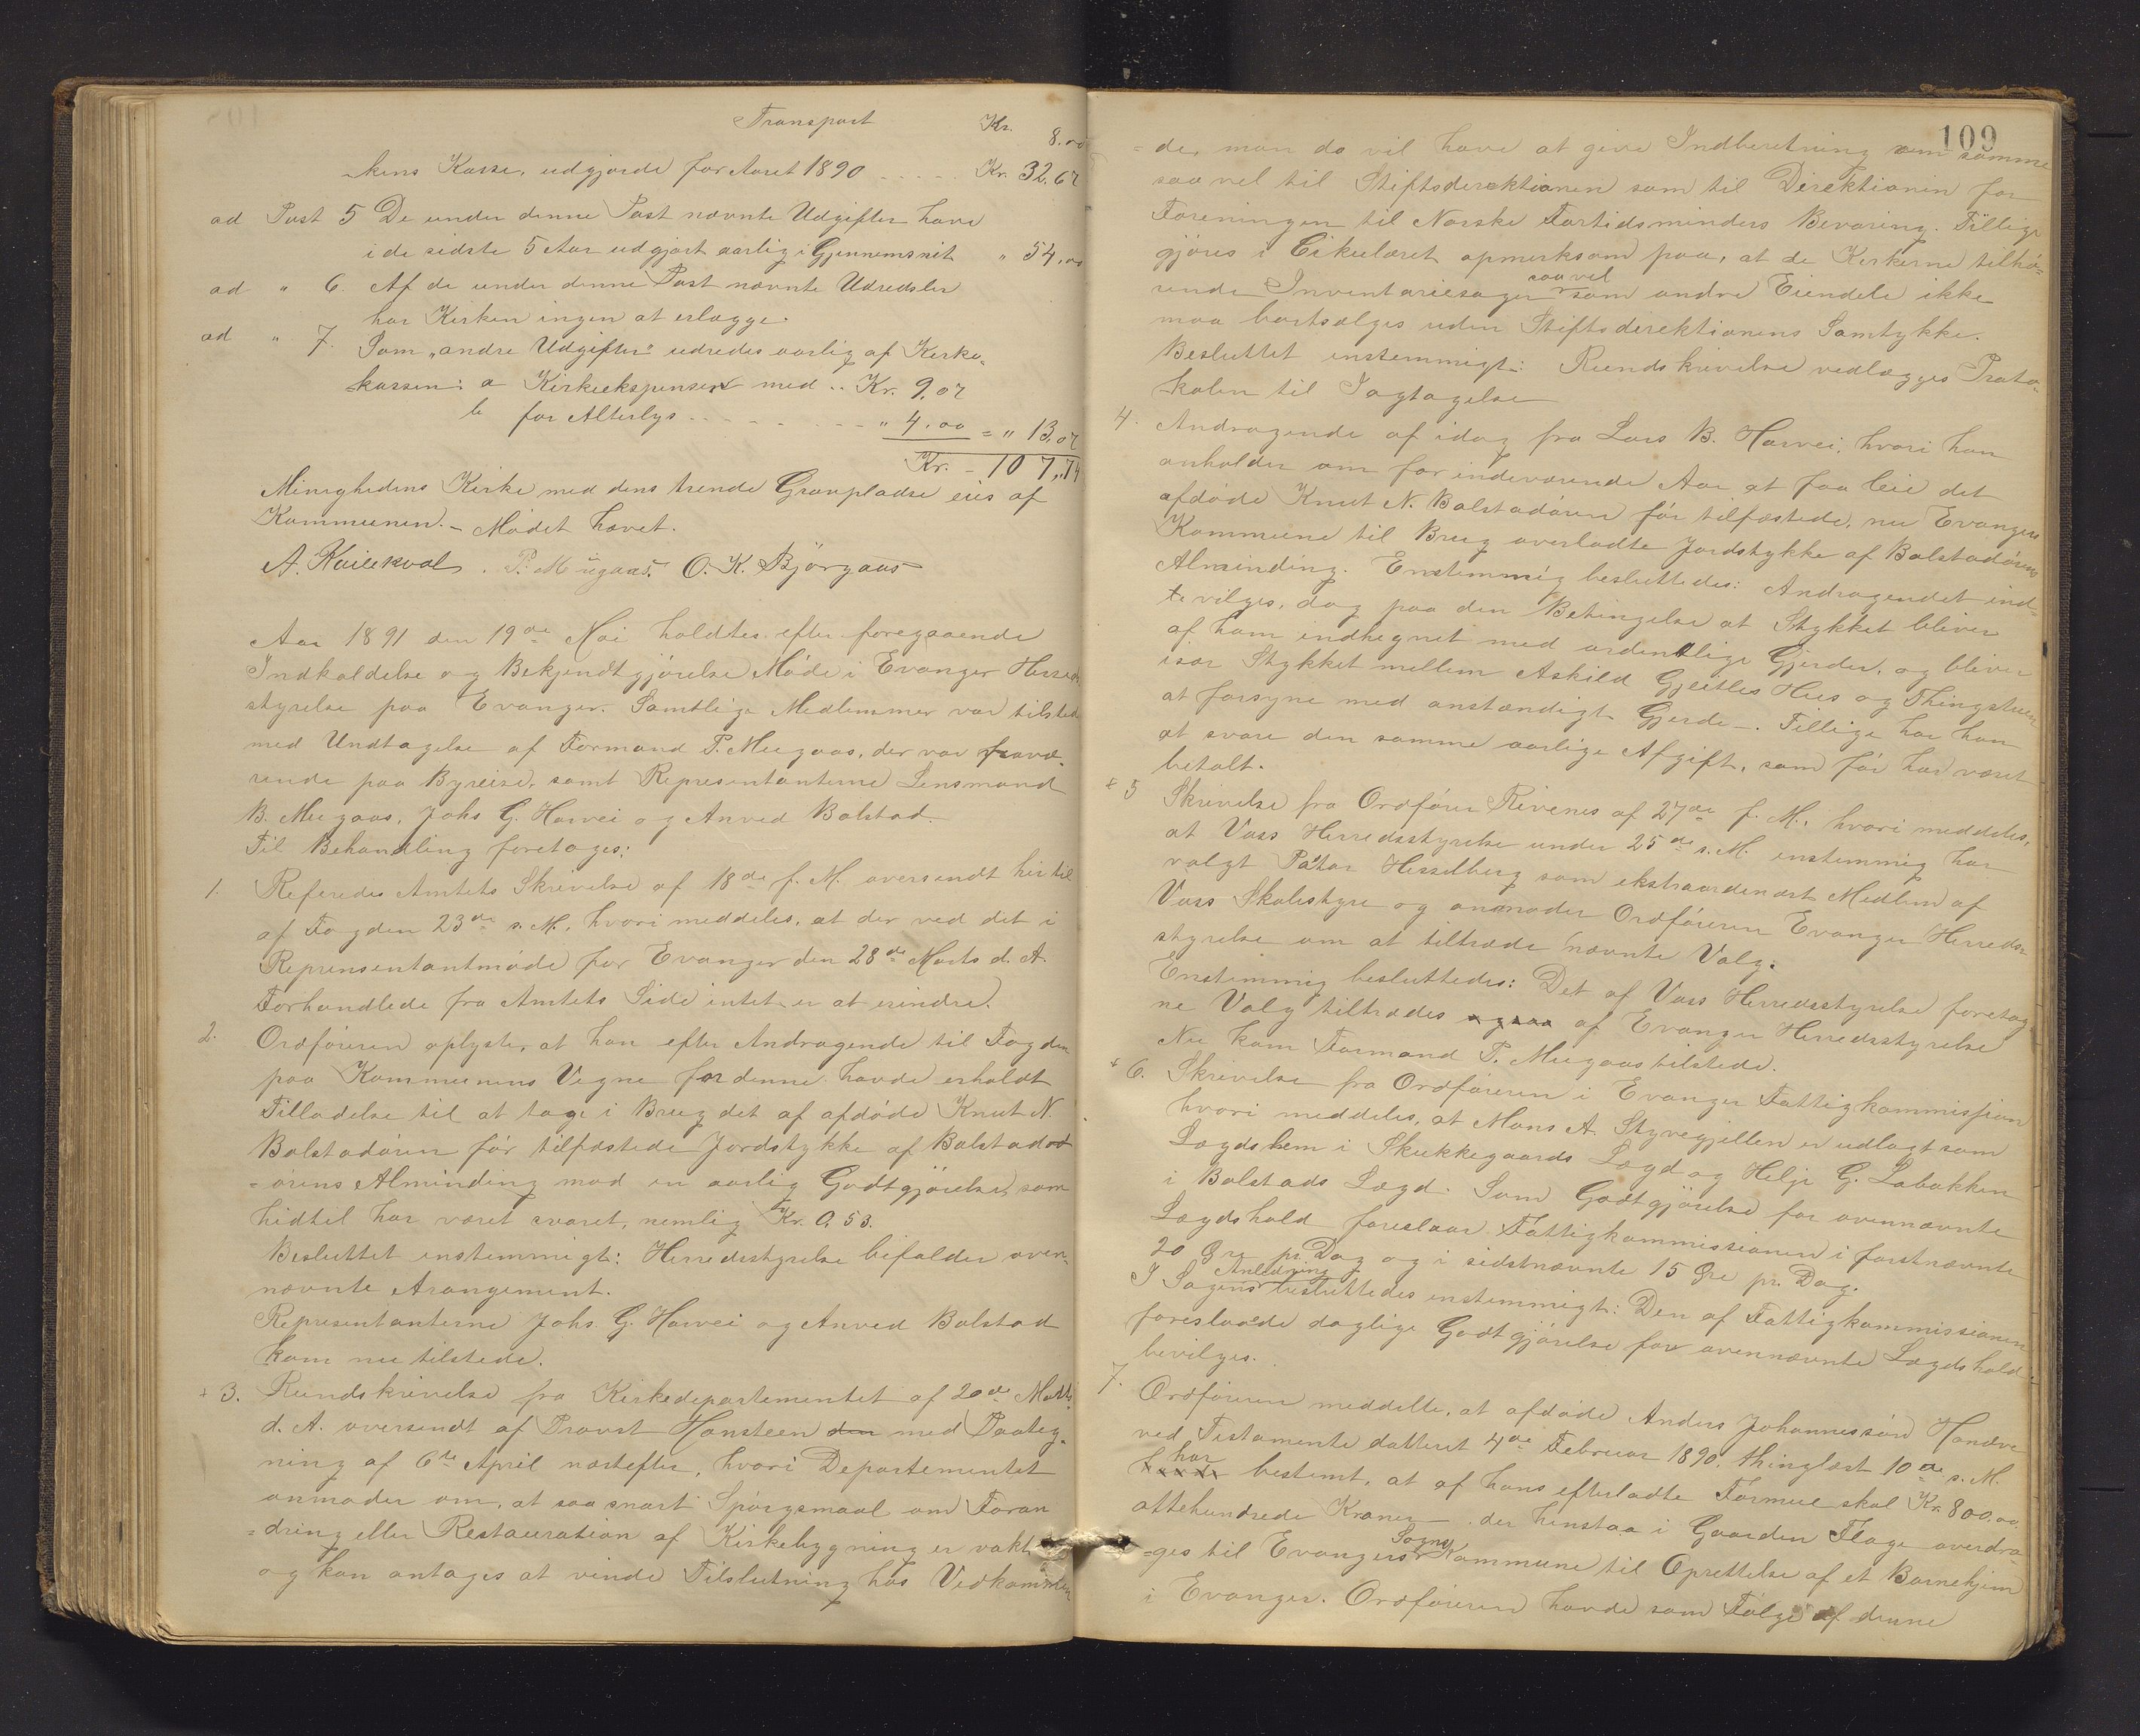 Transport Kr. 8.00
kens Kasse, udgjorde for Aaret 1890 . . . . . Kr. 32.67
ad Post 5 De under denne Post nævnte Udgifter have
i de sidste 5 Aar udgjort aarlig i Gjennemsnit " 54,00
ad " 6. Af de under denne Post nævnte Udredsler
har Kirken ingen at erlægge.
ad " 7. Som „andre Udgifter" udredes aarlig af Kirke-
kassen: a Kirkeekspenser med .. Kr. 9,07
b for Alterlys . . . . . . . . " 4,00 = " 13,07
Kr. - 107,74
Menighedens Kirke med dens trende Gravpladse eies af
Kommunen. - Mødet hævet.
A. Kvilekval . P. Mugaas. O. K. Bjørgaas
Aar 1891 den 19de Mai holdtes efter foregaaende
Indkaldelse og Bekjendtgjørelse Møde i Evanger Herreds
styrelse paa Evanger. Samtlige Medlemmer var tilsted
med Undtagelse af Formand P. Mugaas, der var fravæ-
rende paa Byreise, samt Representanterne Lensmand
B. Mugaas, Johs G. Horvei og Anved Bolstad.
Til Behandling foretoges:
1. Referedes Amtets Skrivelse af 18de f. M. oversendt hertil
af Fogden 23de s. M., hvori meddeles, at der ved det i
Reprensentantmøde for Evanger den 28de Marts d. A.
Forhandlede fra Amtets Side intet er at erindre.
2. Ordføreren oplyste, at han efter Andragende til Fogden
paa Kommunens Vegne for denne havde erholdt
Tilladelse til at tage i Brug det af afdøde Knut N.
Bolstadøren før tilfæstede Jordstykke af Bolstad
=ørens Alminding mod en aarlig Godtgjørelse, som
hidtil har været svaret, nemlig Kr. 0,53.
Besluttet enstemmigt: Herredsstyrelse bifalder oven-
nævnte Arangement.
Representanterne Johs. G. Horvei og Anved Bolstad
kom nu tilstede.
+ 3. Rundskrivelse fra Kirkedepartementet af 20de Marts
d. A. oversendt af Provst Hansteen den med Paateg-
ning af 6te April næstefter, hvori Departementet
anmoder om, at saa snart Spørgsmaal om Foran
=dring eller Restauration af Kirkebygning er vakt
og kan antages at vinde Tilslutning hos Vedkommen
109
=de, man da vil have at give Indberetning om samme
saa vel til Stiftsderektionen som til Direktionin for
Foreningen til Norske Fortidsminders Bevaring. Tillige
gjøres i Cikulæret opmerksom paa, at de Kirkerne tilhø-
saavel
rende Inventariesager som andre Eiendele ikke
maa bortsælges uden Stiftsdirektionens Samtykke.
Besluttet enstemmigt: Rundskrivelse vedlægges Proto-
kolen til Iagtagelse
4. Andragende af idag fra Lars B. Horvei, hvori han
anholder om for indeværende Aar at faa leie det
afdøde Knut N. Bolstadøren før tilfæstede, nu Evangers
Kommune til Brug overladte Jordstykke af Bolstadørens
Alminding. Enstemmig besluttedes: Andragendet ind-
tevilges, dog paa den Betingelse at Stykket bliver
af ham indhegnet med ordentlige Gjerder, og bliver
især Stykket mellem Askild Gjeitles Hus og Thingstuen
at forsyne med anstændigt Gjerde -. Tillige har han
at svare den samme aarlige Afgift, som før har været
betalt.
+ 5 Skrivelse fra Ordfører Rivenes af 27de f. M., hvori meddeles,
at Voss Herredsstyrelse under 25de s. M. enstemmig har
valgt Pastor Hesselberg som ekstraordenært Medlem af
Voss Skolestyre og anmoder Ordføreren Evanger Herreds-
styrelse om at tiltræde nævnte Valg.
Enstemmig besluttedes: Det af Voss Herredsstyrelse foretag
ne Valg tiltrædes ogsaa af Evanger Herredsstyrelse
Nu kom Formand P. Mugaas tilstede.
+ 6. Skrivelse fra Ordføreren i Evanger Fattigkommission
hvori meddeles, at Mons A. Styvegjellen er udlagt som
Lægdslem i Skukkegaards Lægd og Helje G. Labakken
i Bolstads Lægd. Som Godtgjørelse for ovennævnte
Lægdshold foreslaar Fattigkommissionen i førstnævnte
20 Øre pr. Dag og i sidstnævnte 15 Øre pr. Dag.
Anledning
I Sagens besluttedes enstemmigt: Den af Fattigkommissionen
foreslaaede daglige Godtgjørelse for ovennævnte Lægdshold
bevilges.
7. Ordføreren meddelte, at afdøde Anders Johannessøn Horvæ
ved Testamente datteret 4de Februar 1890, thinglæst 10de s. M.
har
bestemt, at af hans efterladte Formue skal Kr. 800.00
ottehundrede Kroner - der henstaa i Gaarden Flage overdra-
Sogns
=ges til Evangers Kommune til Oprettelse af et Barnehjem
i Evanger. Ordføreren havde som Følge af denne